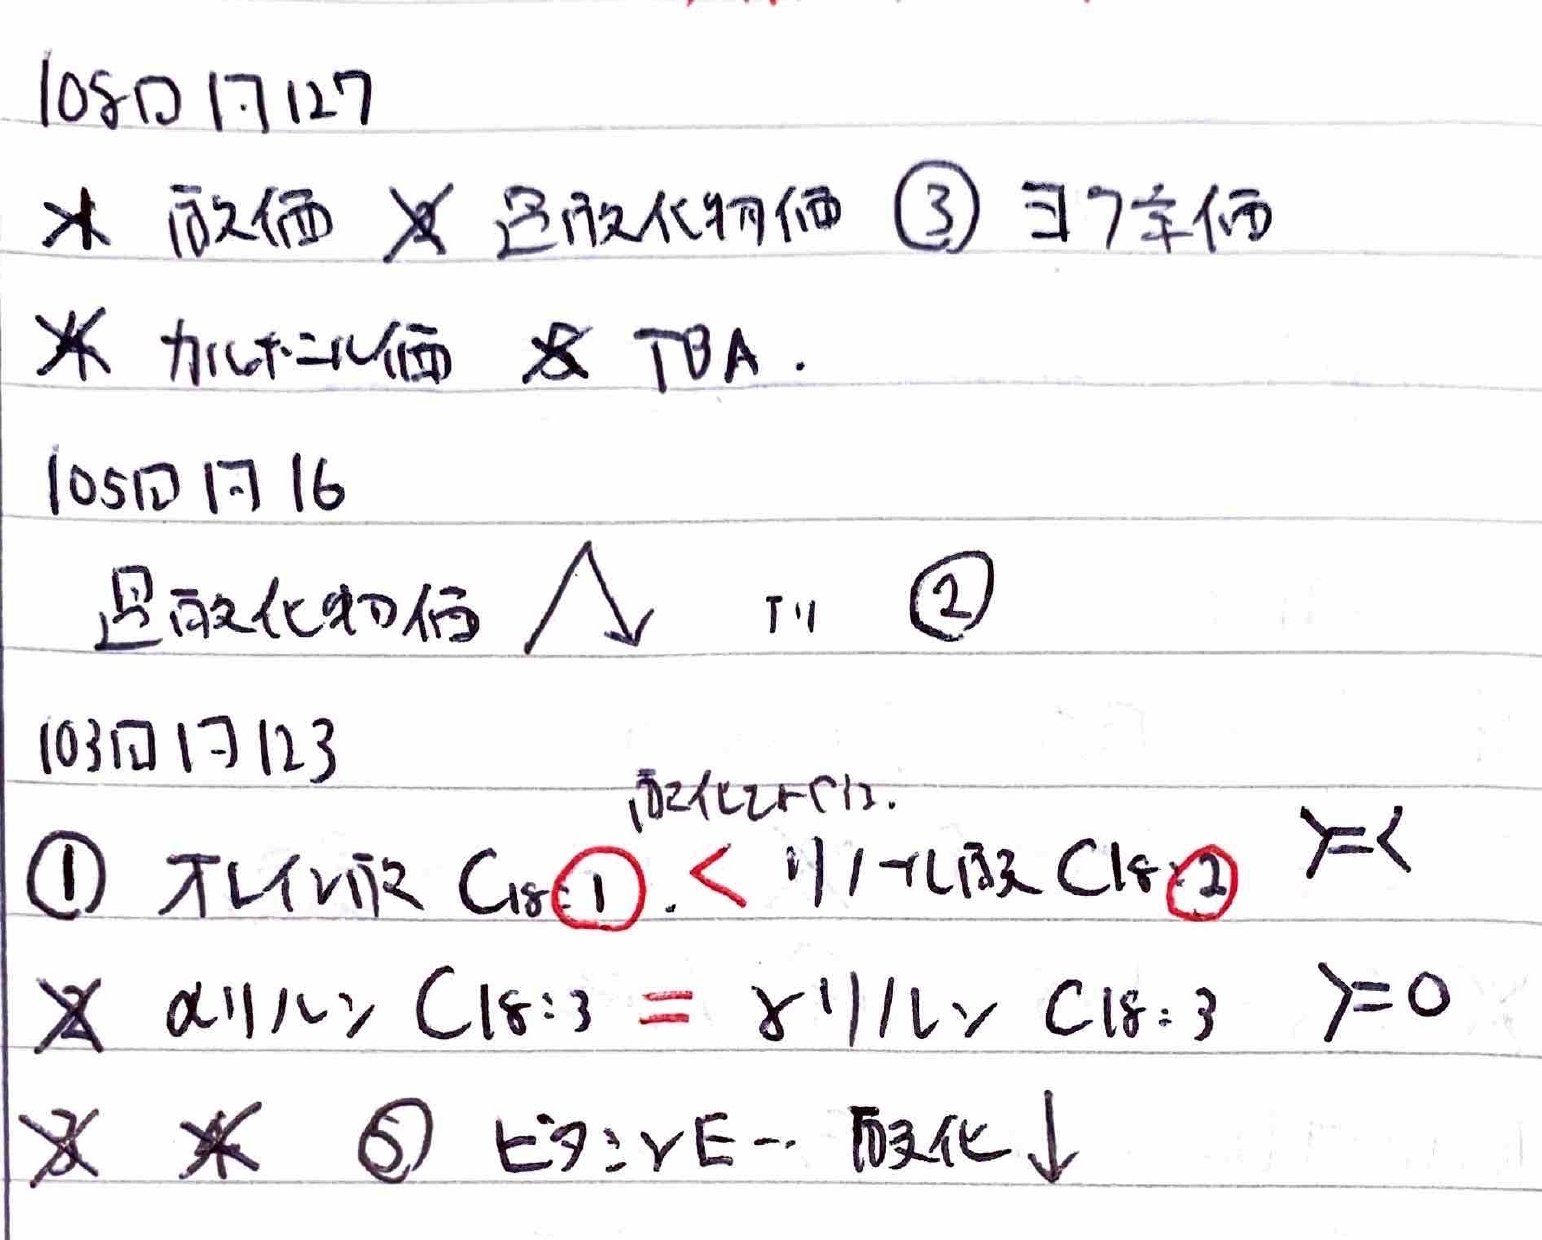 108回問127
1 酸価 2 過酸化物価 ③ ヨウ素価
4 カルボニル価 5 TBA.
105回問16
過酸化物価 ②
103回問123
酸化されやすい.
① オレイン酸 C18:1. < リノール酸 C18:2 >=<
2 αリノレン C18:3 = γリノレン C18:3 >=0
3 4 ⑤ ビタミンE… 酸化↓